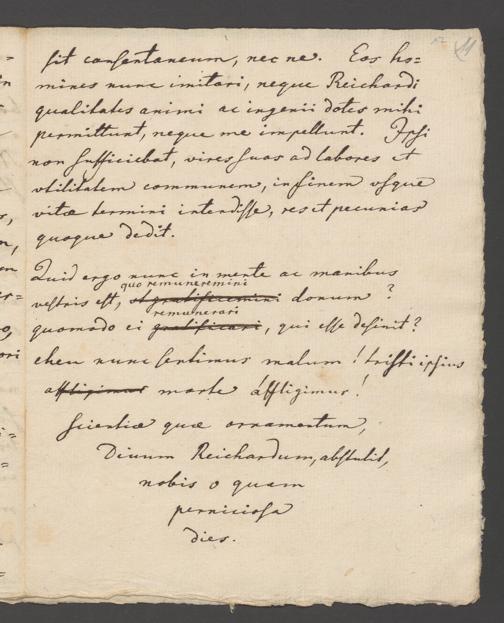 11
sit consentaneum, nec ne. Eos ho=
mines nunc imitari, neque Reichardi
qualitates animi ac ingenii dotes mihi
permittunt, neque me impellunt. Ipsi
non sufficiebat, vires suas ad labores et
vtilitatem communem, in finem vsque
vitæ termini intendisse, res et pecunias
quoque dedit.
Quid ergo nunc in mente ac manibus
quo remuneremini
vestris est, vt gratificemini donum?
remunerari
quomodo ei gratificari, qui esse desinit?
eheu nunc sentimus malum! tristi ipsius
affligimur morte affligimur!
scientiæ quæ ornamentum,
Divum Reichardum, abstulit,
nobis o quam
perniciosa
dies.